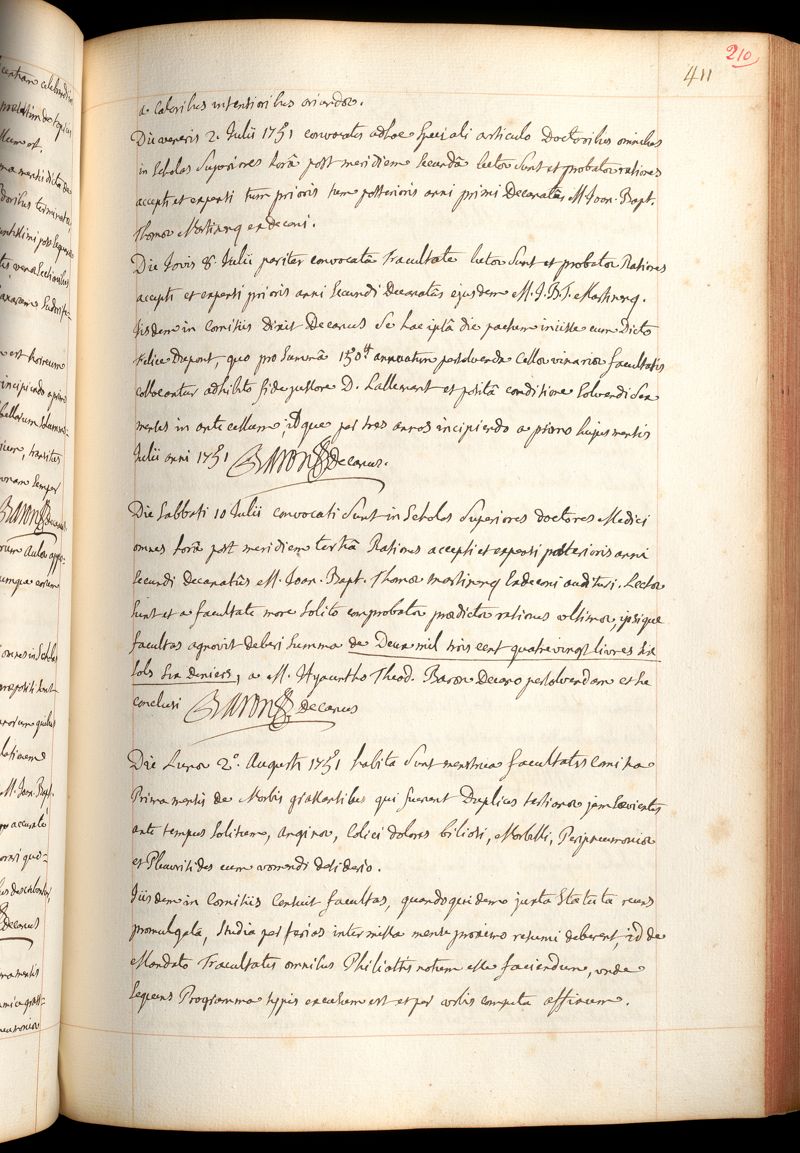 210
411
a caloribus intentioribus oriundæ.
Die veneris 2. Julii 1751 convocatis ad hoc speciali articulo Doctoribus omnibus
in Scholas Superiores horâ post meridiem secundâ lectæ sunt et probatæ rationes
accepti et expensi tum prioris tum posterioris anni primi Decanatûs M. Joan. Bapt.
Thomæ Martinenq exdecani.
Die Jovis 8. Julii pariter convocatâ Facultate lectæ sunt et probatæ Rationes
accepti et expensi prioris anni secundi Decanatûs ejusdem M. J. B. T. Martinenq.
Iisdem in Comitiis dixit Decanus se hac ipsâ die pactum iniisse cum Dicto
Felice Dupont, quo pro summâ 150 tt annuatim persolvenda cellæ vinariæ facultatis
collocantur adhibito fidejussore D. Lallemant et positâ conditione solvendi sex
menses in ante cessum, idque per tres annos incipiendo a primo hujus mensis
Julii anni 1751 Baron Decanus.
Die Sabbati 10 Julii convocati sunt in Scholas Superiores doctores Medici
omnes horâ post meridiem tertiâ Rationes accepti et expensi posterioris anni
secundi Decanatûs M. Joan. Bapt. Thomæ Martinenq Exdecani audituri. Lectæ
sunt et a facultate more solito comprobatæ prædictæ rationes ultimæ, ipsique
facultas agnovit deberi summa de Deux mil trois cent quatre vingt livres six
sols six deniers, a M. Hyacintho Theod. Baron Decano persolvendam et sic
conclusi Baron Decanus
Die Lunæ 2.º Augusti 1751 habita sunt menstrua facultatis Comitia
Prima mensis de Morbis grassantibus qui fuerunt Duplices tertianæ jam sævientes
ante tempus solitum, anginæ, Colici dolores biliosi, Morbilli, Peripneumoniæ
et Pleuritides cum vomendi desiderio.
Iisdem in Comitiis Censuit facultas, quandoquidem juxta Statuta recens
promulgata, studia per ferias intermissa mense proximo resumi deberent, id de
Mandato Facultatis omnibus Philiatris notum esse faciendum, unde
sequens Programma typis excusum est et per urbis compita affixum.